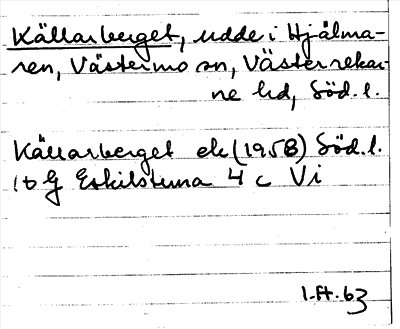 Källarberget, udde i Hjälma-
ren, Västermo sn, Västerrekar-
ne hd, Söd.l.
Källarberget ek (1958) Söd.l.
10 G Eskilstuna 4 c V i
63